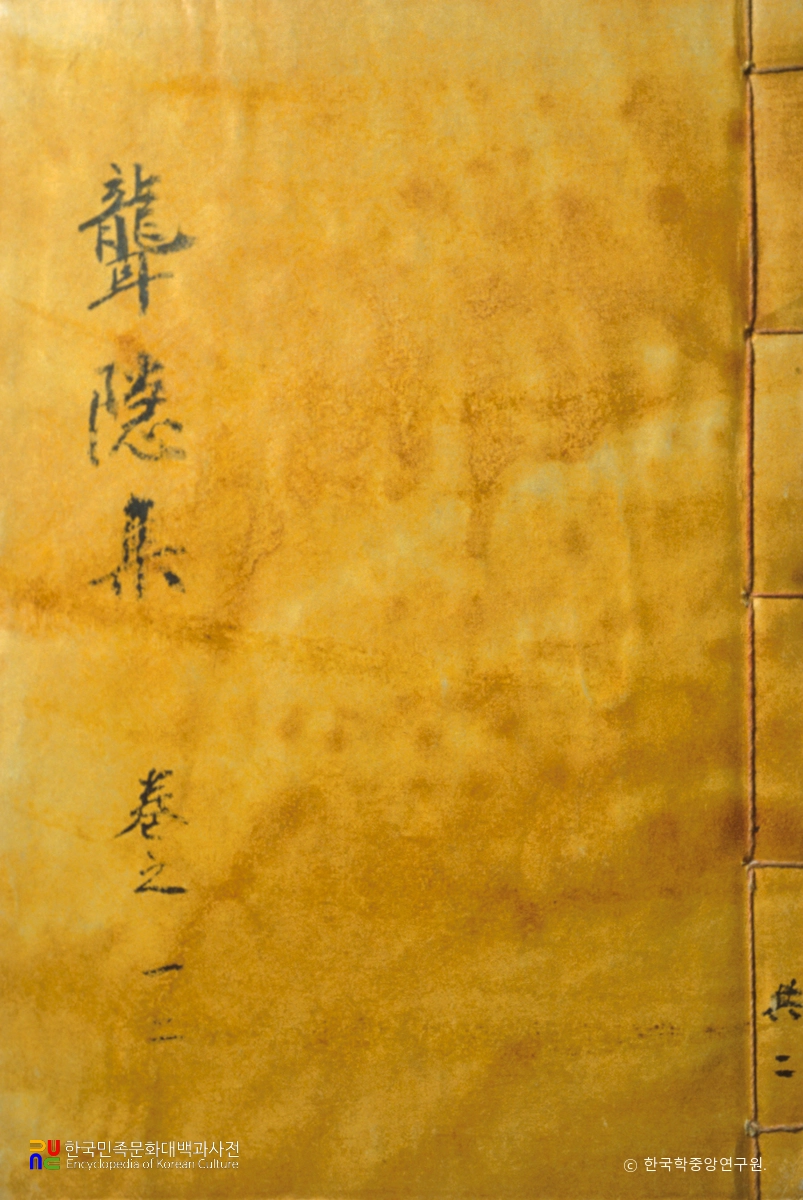 聾隱集
卷之
一 二
共二
한국민족문화대백과사전
Encyclopedia of Korean Culture
ⓒ 한국학중앙연구원.